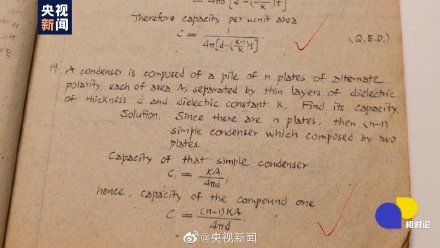 央视新闻
4π[d-(k-1/k)t]
Therefore capacity per unit area
C = 1/4π[d-(k-1/k)t]
(Q.E.D.)
19. A condenser is composed of a pile of n plates of alternate
polarity, each of area A, separated by thin layers of dielectric
of thickness d and dielectric constant K. Find its capacity.
Solution. Since there are n plates, then (n-1)
simple condenser which composed by two
plates.
Capacity of that simple condenser
C₁ = KA/4πd,
hence, capacity of the compound one
C = (n-1)KA/4πd
相对论
@央视新闻